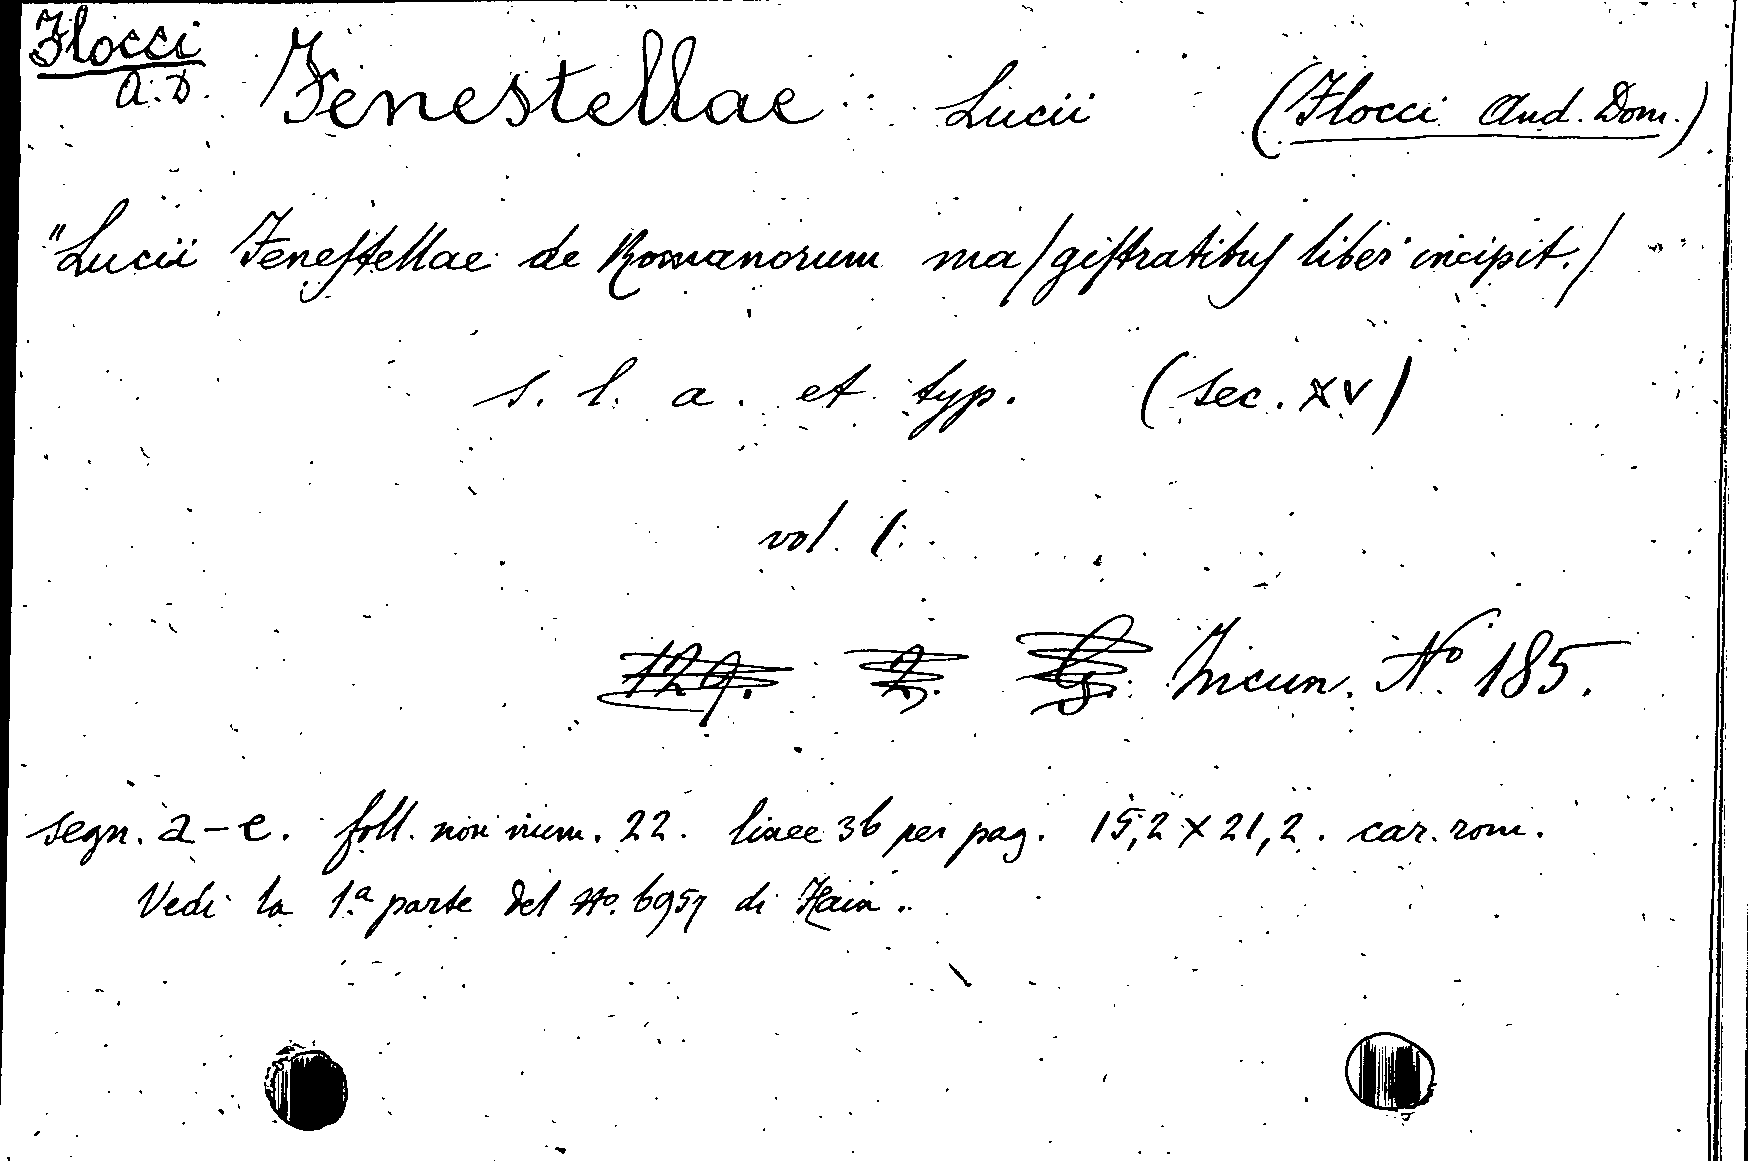 Flocci
A. D.
Fenestellae Lucii (Flocci And. Dom.)
"Lucii Feneſtellae de Romanorum ma/giſtratibuſ liber incipit./
s. l. a. et typ. (sec. XV)
vol. 1.
129. 2. Incun. No. 185.
segn. a-e. foll. non num. 22. linee 36 per pag. 15,2 x 21,2. car. rom.
Vedi la 1.a parte del No. 6957 di Hain.